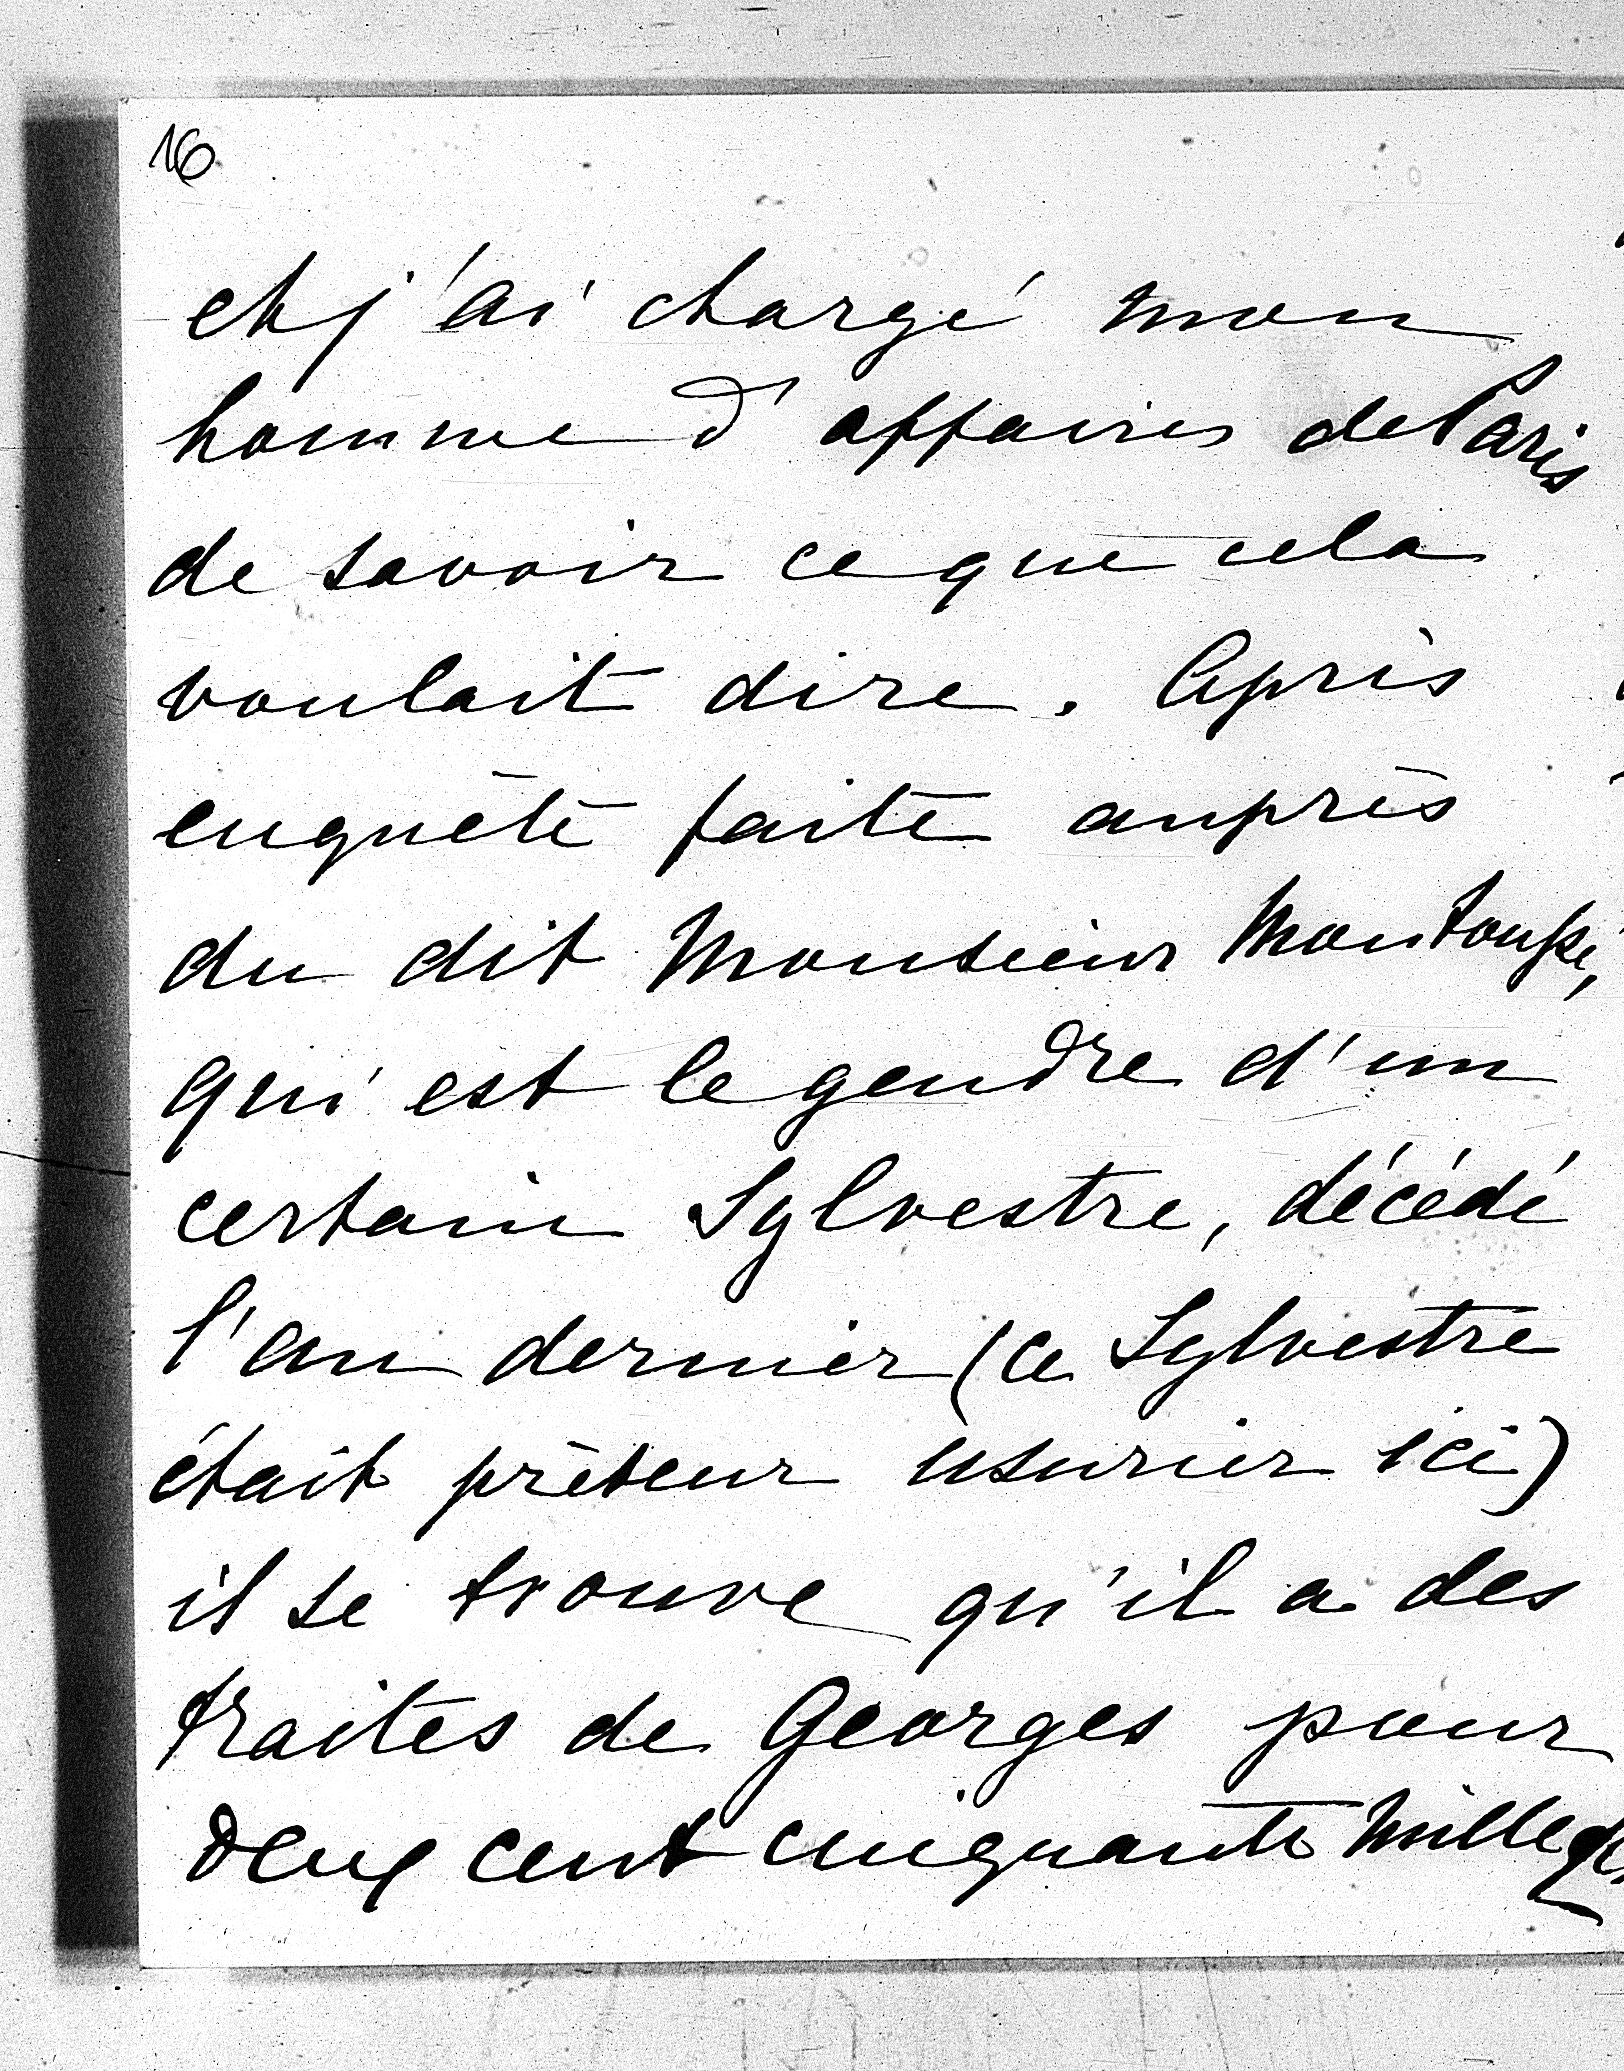 16
et j'ai chargé mon
homme d'affaires de Paris
de savoir ce que cela
voulait dire. Après
enquête faite auprès
du dit Monsieur
qui est le gendre d'un
certain Sylvestre, décédé
l'an dernier (ce Sylvestre
était prêteur usurier ici)
il se trouve qu'il a des
traites de Georges pour
deux cent cinquante mille